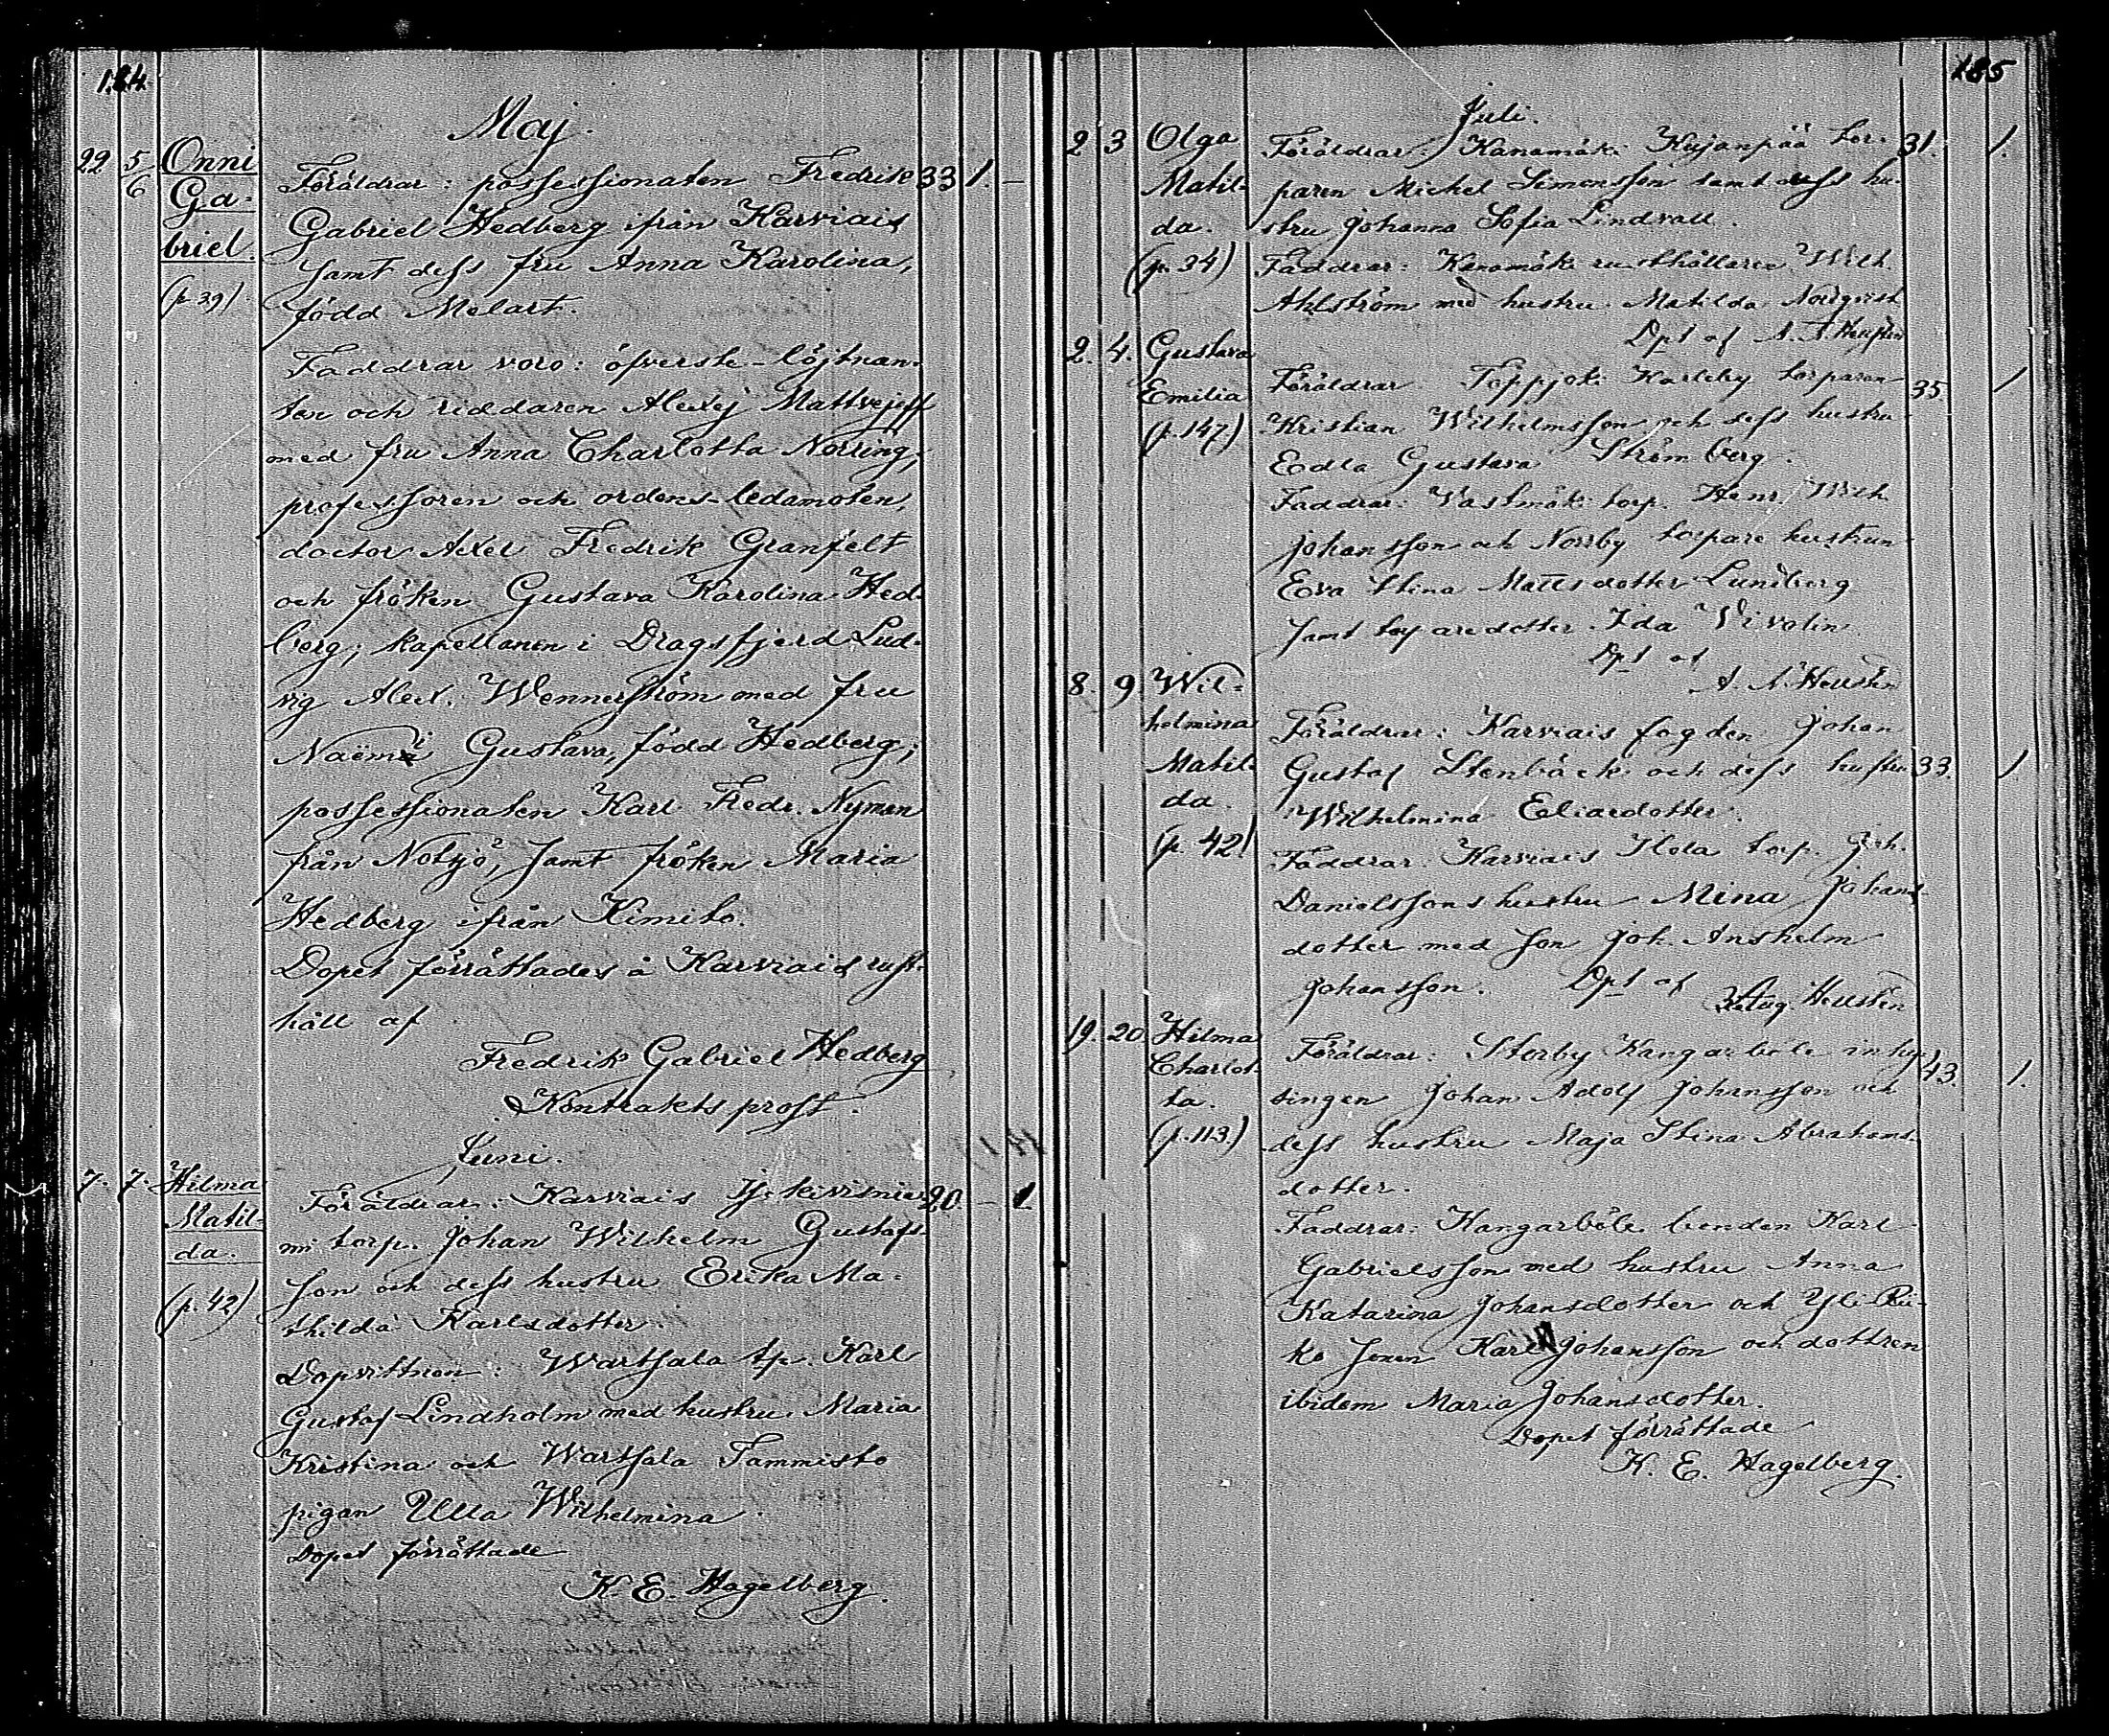 184
Maj.
22 5/6 Onni Gabriel. (p. 39)
Föräldrar: possessionaten Fredrik 33 1. –
Gabriel Hedberg ifrån Karviais
samt dess fru Anna Karolina,
född Melart.
Faddrar voro: öfverste-löjtnan-
ten och riddaren Alexej Mattvejeff
med fru Anna Charlotta Norring;
professoren och ordens-ledamoten,
doctor Axel Fredrik Granfelt
och fröken Gustava Karolina Hed-
berg; kapellanen i Dragsfjerd Lud-
vig Alex. Wennerström med fru
Naëmi Gustava, född Hedberg;
possessionaten Karl Fredr. Nyman
från Notsjö, samt fröken Maria
Hedberg ifrån Kimito.
Dopet förrättades å Karviais rust-
håll af
Fredrik Gabriel Hedberg
Kontraktsprost.
Juni.
7. 7. Hilma Matil-da. (p. 42)
Föräldrar: Karviais 20. – 1.
torp. Johan Wilhelm Gustafs-
son och dess hustru Erika Ma-
thilda Karlsdotter.
Dopvittnen: Wartsala tp. Karl
Gustaf Lindholm med hustru Maria
Kristina och Wartsala Tammisto
pigan Ulla Wilhelmina.
Dopet förrättade
K. E. Hagelberg.
185
Juli.
2 3 Olga Matil-da. (p. 34)
Föräldrar Kanamäki Kujanpää tor- 31. 1.
paren Mickel Simonsson samt dess hu-
stru Johanna Sofia Lindvall.
Faddrar: Kanamäki rusthållaren Wilh.
Ahlström med hustru Matilda Nordqvist
Dpt af A. A. Hellsten
2. 4. Gustava Emilia (p. 147)
Föräldrar Töppjoki Karleby torparen 35. 1
Kristian Wilhelmsson och dess hustru
Edla Gustava Strömberg.
Faddrar: Vastmäki torp. Henr. Wilh.
Johansson och Norrby torpare hustrun
Eva Stina Mattsdotter Lundberg
samt torparedotter Ida Vivolin
Dpt af
A. A. Hellsten
8. 9. Wil-helmina Matil-da. (p. 42)
Föräldrar: Karviais fogden Johan
Gustaf Stenbäck och dess hustru 33. 1
Wilhelmina Eliardotter.
Faddrar: Karviais torp. Joh.
Danielssons hustru Mina Johans-
dotter med son Joh. Anshelm
Johansson. Dpt af
Aug. Hellsten
19. 20. Hilma Charlot-ta. (p. 113.)
Föräldrar: Storby Kangarböle inhy- 43. 1.
singen Johan Adolf Johansson och
dess hustru Maja Stina Abrahams-
dotter.
Faddrar: Kangarböle bonden Karl
Gabrielsson med hustru Anna
Katarina Johansdotter och Yli-Rii-
ko sonen Karl Johansson och dottren
ibidem Maria Johansdotter.
Dopet förrättade
K. E. Hagelberg.